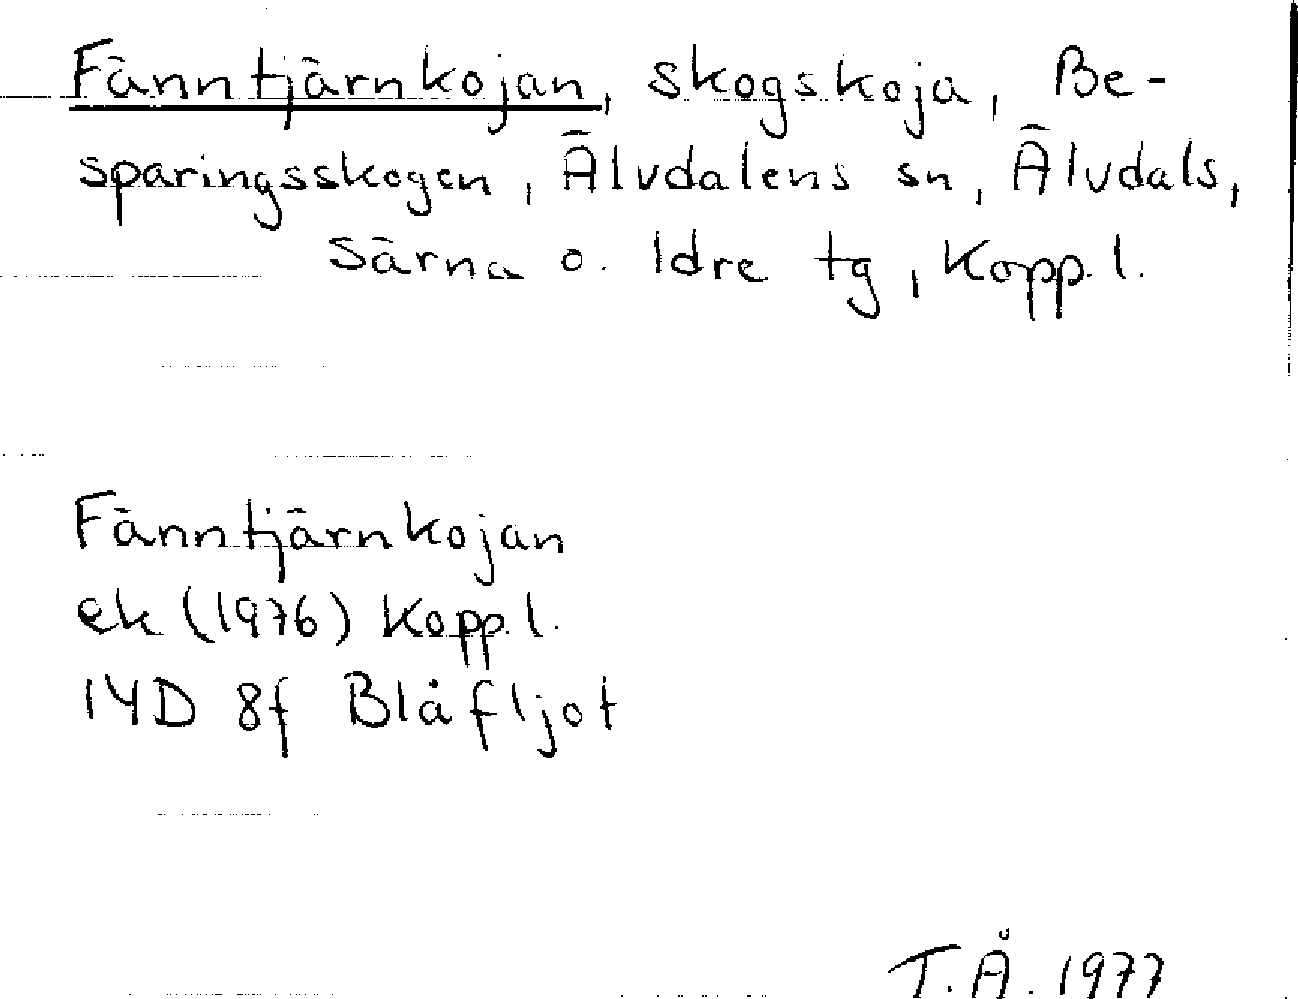 Fänntjärnkojan, skogskoja, Be-
sparingsskogen, Älvdalens sn, Älvdals,
Särna o. Idre tg, Kopp.l.
Fänntjärnkojan
ek (1976) Kopp.l.
14D 8f Blåfljot
T.Å. 1977